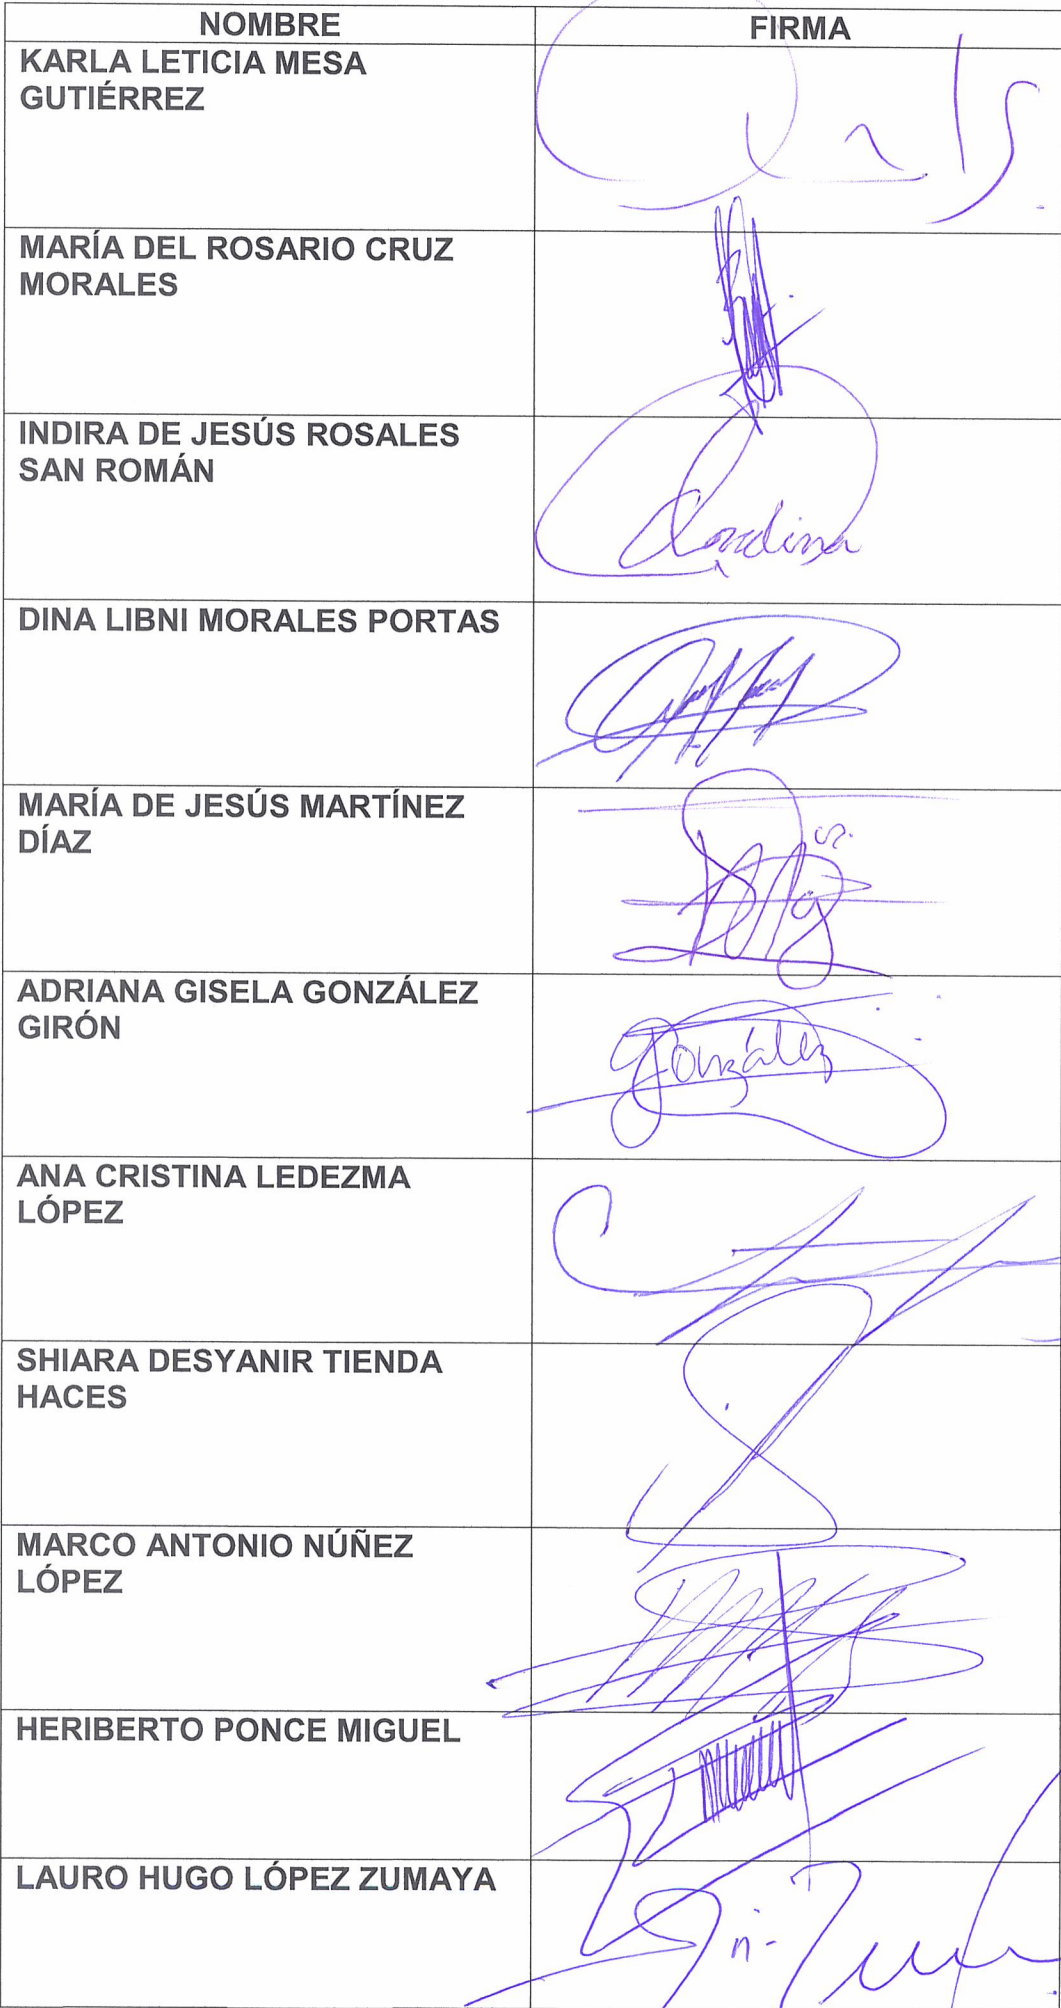 NOMBRE FIRMA
KARLA LETICIA MESA
GUTIÉRREZ
MARÍA DEL ROSARIO CRUZ
MORALES
INDIRA DE JESÚS ROSALES
SAN ROMÁN
DINA LIBNI MORALES PORTAS
MARÍA DE JESÚS MARTÍNEZ
DÍAZ
ADRIANA GISELA GONZÁLEZ
GIRÓN
González
ANA CRISTINA LEDEZMA
LÓPEZ
SHIARA DESYANIR TIENDA
HACES
MARCO ANTONIO NÚÑEZ
LÓPEZ
HERIBERTO PONCE MIGUEL
LAURO HUGO LÓPEZ ZUMAYA